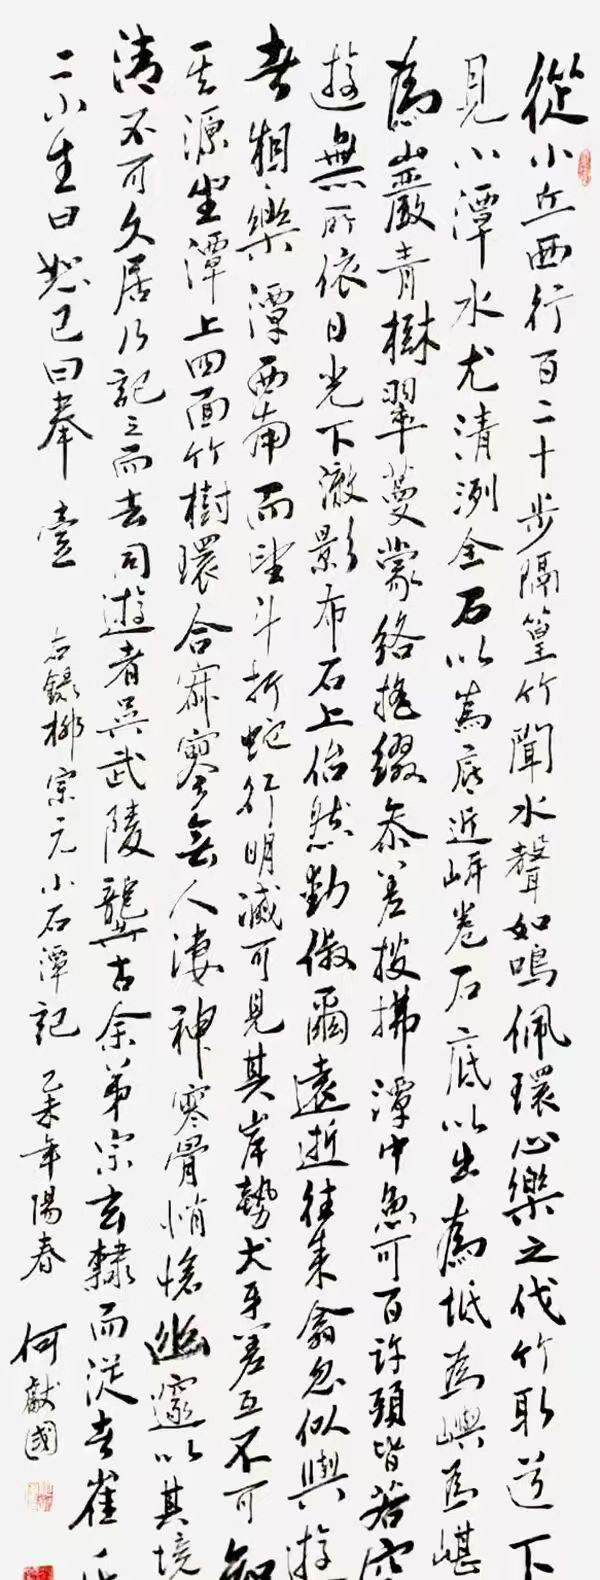 從小丘西行百二十步隔篁竹聞水聲如鳴佩環心樂之伐竹取道下
見小潭水尤清冽全石以爲底近岸卷石底以出爲坻爲嶼爲嵁
爲巖青樹翠蔓蒙絡搖綴參差披拂潭中魚可百許頭皆若空
遊無所依日光下澈影布石上佁然不動俶爾遠逝往來翕忽似與遊
者相樂潭西南而望斗折蛇行明滅可見其岸勢犬牙差互不可知
其源坐潭上四面竹樹環合寂寥無人淒神寒骨悄愴幽邃以其境
清不可久居乃記之而去同遊者吳武陵龔古余弟宗玄隸而從者崔氏
二小生曰恕己曰奉壹
右錄柳宗元小石潭記 乙未年陽春
何獻國